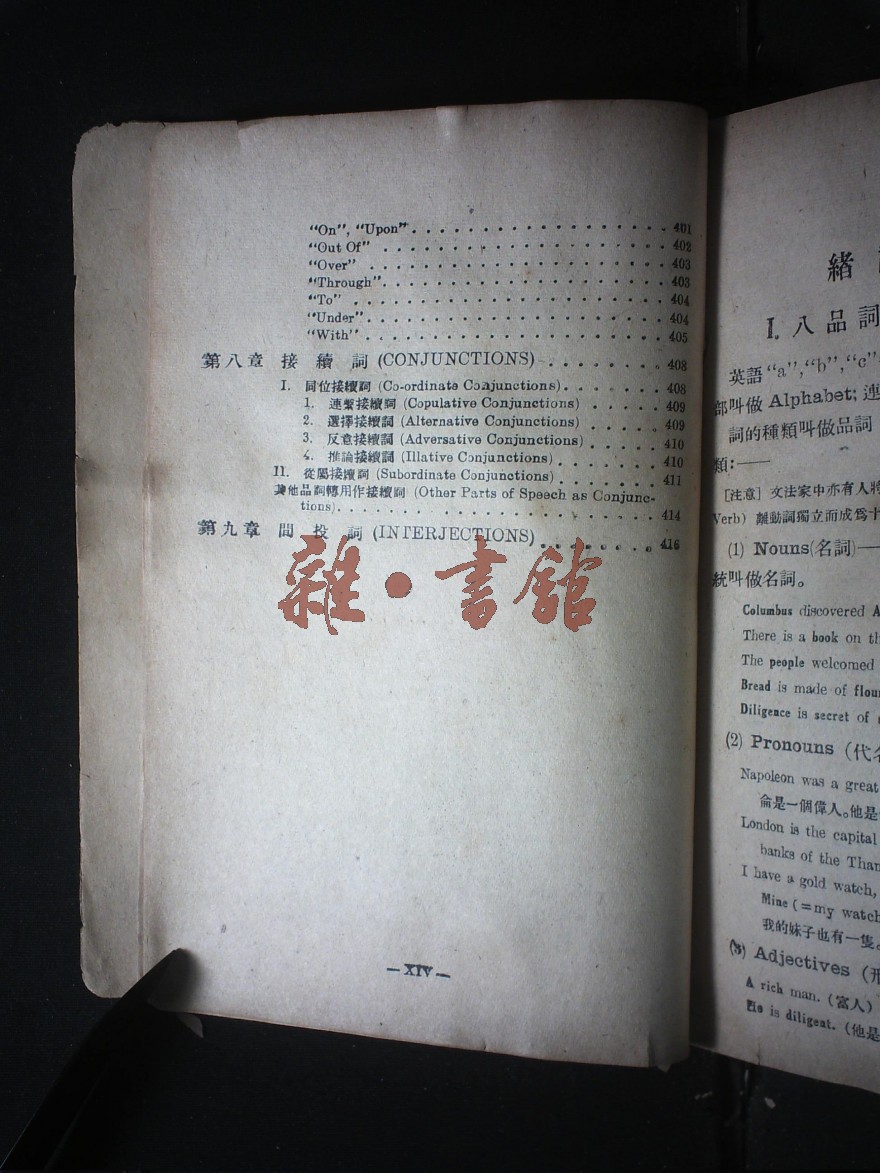 “On”, “Upon” . . . . . . . . . . . . . . . . . . 401
“Out Of” . . . . . . . . . . . . . . . . . . 402
“Over” . . . . . . . . . . . . . . . . . . 403
“Through” . . . . . . . . . . . . . . . . . . 403
“To” . . . . . . . . . . . . . . . . . . 404
“Under” . . . . . . . . . . . . . . . . . . 404
“With” . . . . . . . . . . . . . . . . . . 405
第八章 接續詞 (CONJUNCTIONS) . . . . . . . . 408
I. 同位接續詞 (Co-ordinate Conjunctions) . . . . . . . 408
1. 連繫接續詞 (Copulative Conjunctions) . . . . . 409
2. 選擇接續詞 (Alternative Conjunctions) . . . . . 409
3. 反意接續詞 (Adversative Conjunctions) . . . . . 410
4. 推論接續詞 (Illative Conjunctions) . . . . . . 410
II. 從屬接續詞 (Subordinate Conjunctions) . . . . . . 411
其他品詞轉用作接續詞 (Other Parts of Speech as Conjunc-
tions) . . . . . . . . . . . . . . . . . . 414
第九章 間投詞 (INTERJECTIONS) . . . . . . . . 416
雜·書館
—XIV—
緒
I. 八品詞
英語 “a”, “b”, “c”
部叫做 Alphabet; 連
詞的種類叫做品詞
類:——
[注意] 文法家中亦有人將
Verb) 離動詞獨立而成爲十
(1) Nouns(名詞)—
統叫做名詞。
Columbus discovered A
There is a book on th
The people welcomed
Bread is made of flour
Diligence is secret of
(2) Pronouns (代名
Napoleon was a great
侖是一個偉人。他是
London is the capital
banks of the Tham
I have a gold watch,
Mine (=my watch
我的妹子也有一隻。
(3) Adjectives (形
A rich man. (富人)
He is diligent. (他是